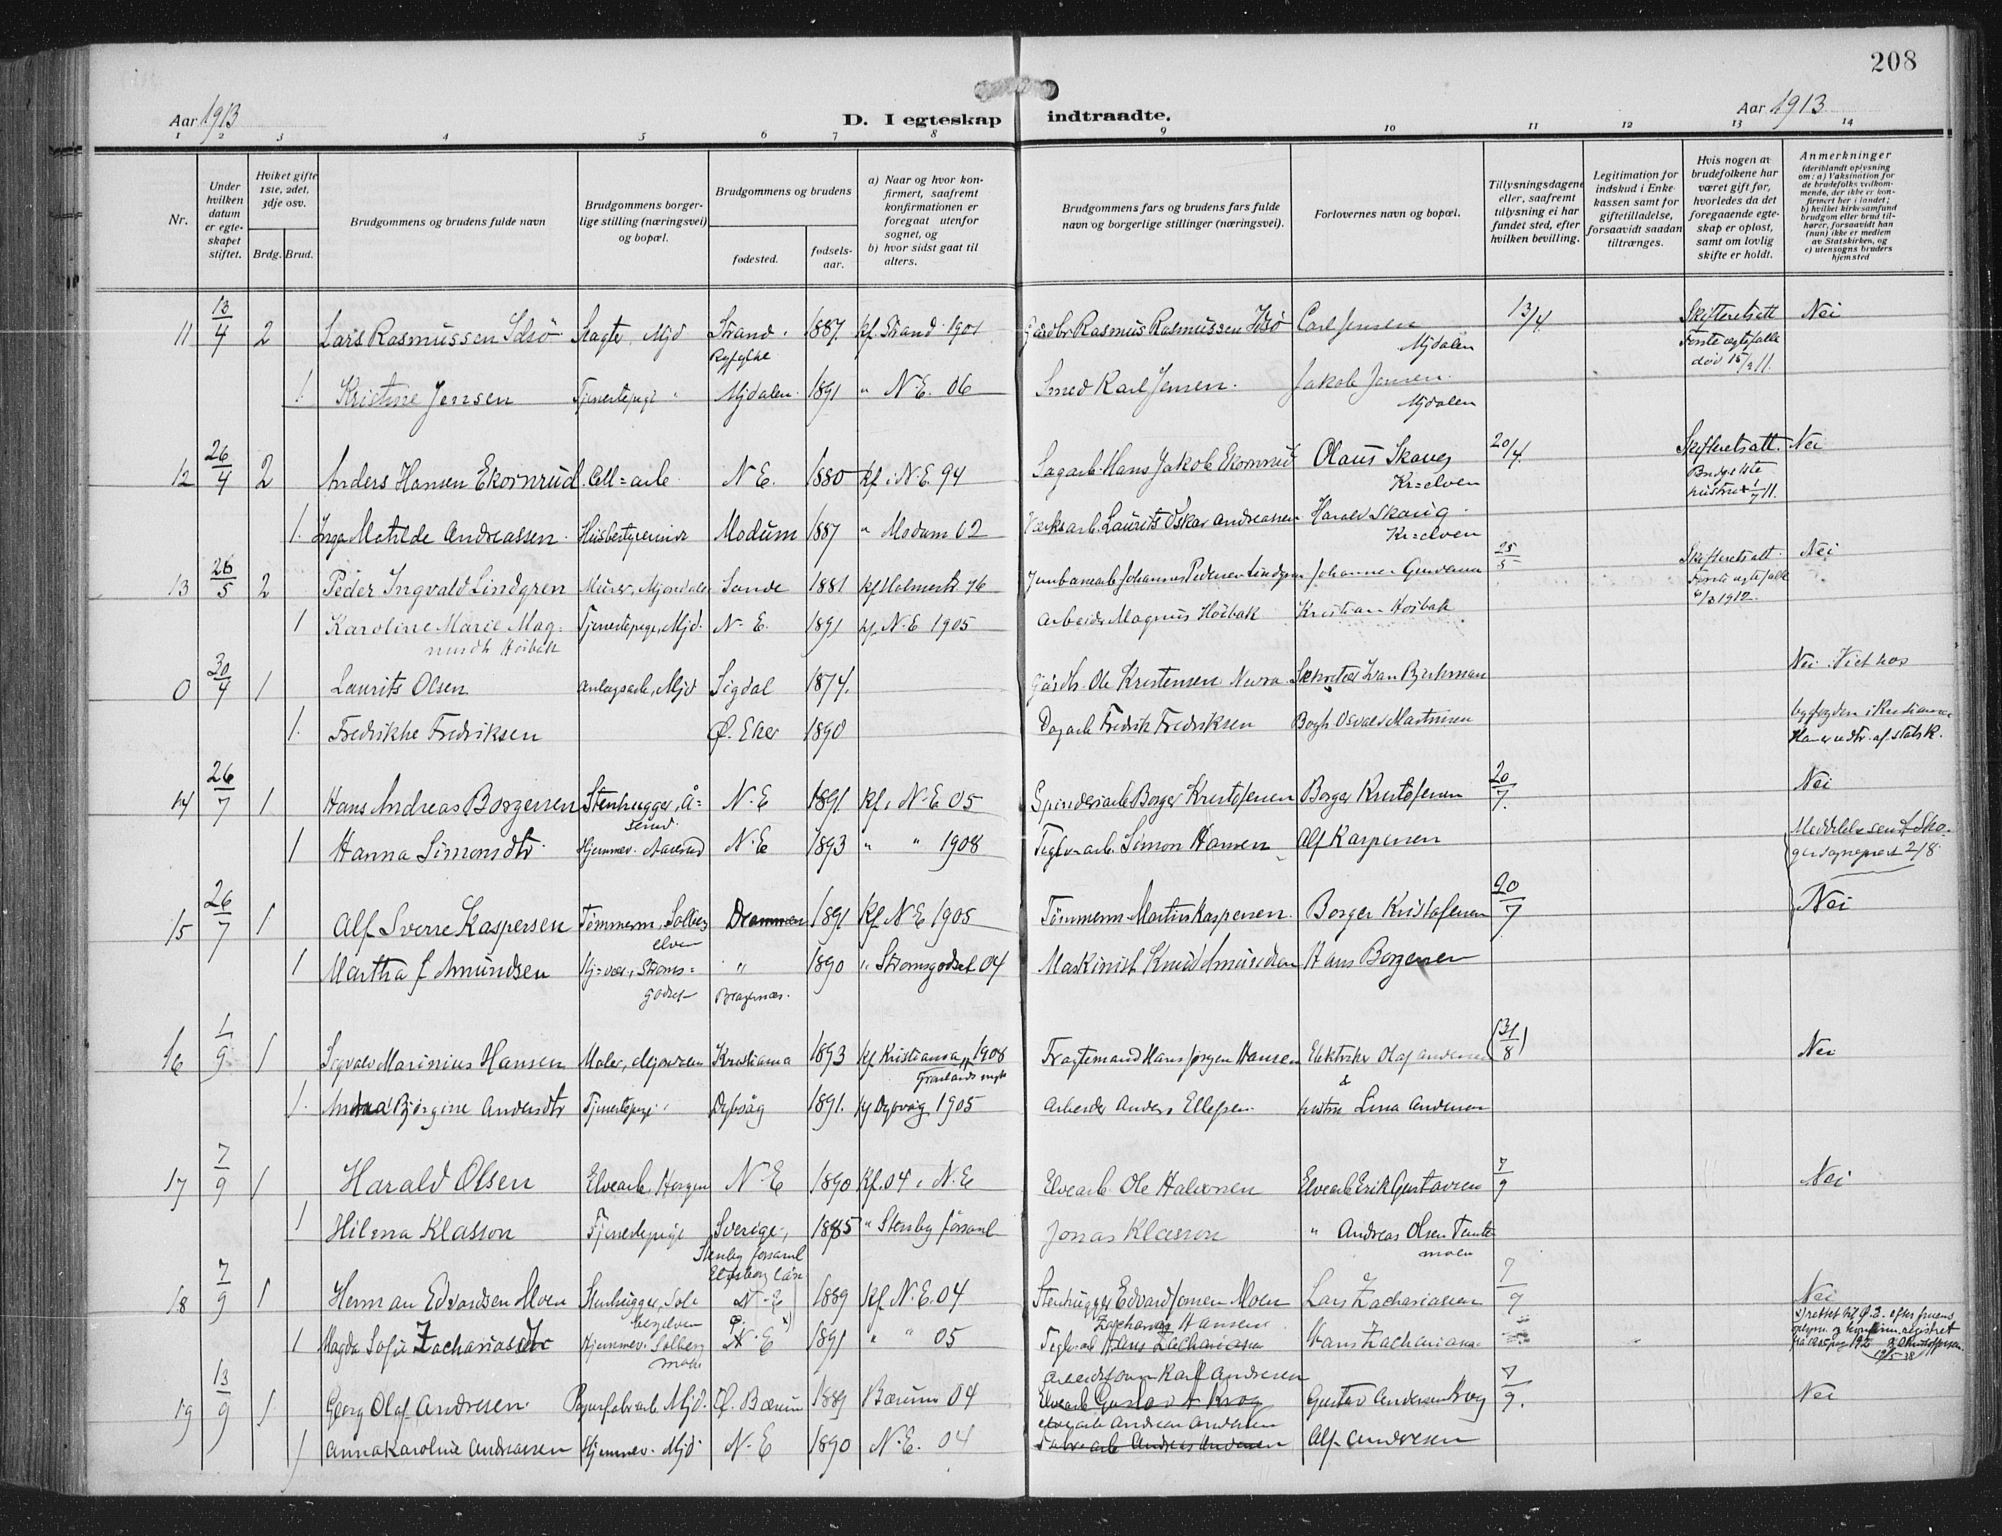 208
Aar 1913
D. I egteskap indtraadte.
Aar 1913
1 2 3 4 5 6 7 8 9 10 11 12 13 14
Nr.
Under hvilken datum er egteskapet stiftet.
Hviket gifte 1ste, 2det, 3dje osv.
Brdg. Brud.
Brudgommens og brudens fulde navn
Brudgommens borgerlige stilling (næringsvei) og bopæl.
Brudgommens og brudens
fødested.
fødselsaar.
a) Naar og hvor konfirmert, saafremt konfirmationen er foregaat utenfor sognet, og
b) hvor sidst gaat til alters.
Brudgommens fars og brudens fars fulde navn og borgerlige stillinger (næringsvei).
Forlovernes navn og bopæl.
Tillysningsdagene eller, saafremt tillysning ei har fundet sted, efter hvilken bevilling.
Legitimation for indskud i Enkekassen samt for giftetilladelse, forsaavidt saadan tiltrænges.
Hvis nogen av brudefolkene har været gift før, hvorledes da det foregaaende egteskap er opløst, samt om lovlig skifte er holdt.
Anmerkninger
(deriblandt oplysning om: a) Vaksination for de brudefolks vedkommende, der ikke er konfirmert her i landet; b) hvilket kirkesamfund brudgom eller brud tilhører, forsaavidt han (hun) ikke er medlem av Statskirken, og c) utensogns bruders hjemsted
11 13/4 2 Lars Rasmussen Idsø Slagter, Mjd Strand Ryfylke 1887. kf. Strand 1901 Gårdbr Rasmus Rasmussen Idsø Carl Jensen Mjdalen 13/4. Skifteretsatt Første egtefælle død 15/2 11. Nei
1. Kristine Jensen Tjenestepige Mjdalen. 1891 " N.E. 06 Smed Karl Jensen. Jakob Jensen. Mjdalen
12 26/4 2 Anders Hansen Ekornrud Cell=arb. N.E. 1880 kf. i N.E. 94 Sagarb. Hans Jakob Ekornrud Olaus Skaug Kr=elven 20/4. Skifteretsatt. Nei
1. Inga Matilde Andreassen. Husbestyrerinde Modum 1887 " Modum 02 Verksarb. Laurits Oskar Andreassen Harald Skaug. Kr=elven
13 26/5 2 Peder Ingvald Lindgren Murer, Mjøndalen Sande 1881 kf Holmestr. 96 Jernbanearb Johannes Pedersen Lindgren Johannes 25/5 Skifteretsatt. Første egtefælle 1912. Nei
1 Karoline Marie Magnusdtr Hoibak Tjenestepige, Mjd. N.E. 1891 kf. N.E 1905 Arbeider Magnus Hoibak Kristian Hoibak
0 30/4 1 Laurits Olsen Anlægsarb, Mjd Sigdal 1874. Gårdbr. Ole Kristensen Sekretær Ivan Bjerkman Nei. Viet hos
1. Fredrikke Fredriksen Ø. Eker 1890 Dagarb Fredrik Fredriksen Bogh. Osvald Martinsen byfogden i Kristiania Han er udtr. af statsk.
14 26/7 1 Hans Andreas Borgersen Stenhugger, Åserud. N.E 1891 kf. i N.E. 05 Spinderiarb Borger Kristofersen Borger Kristofersen 20/7. Nei
1 Hanna Simonsdtr. Hjemmev. Aaserud N.E 1893 " " 1908 Teglv.arb. Simon Hansen Alf Kaspersen Meddelelse sendt Skoger sogneprest 2/8
15 26/7 1 Alf Sverre Kaspersen Tømmerm, Solbergelven Drammen 1891 kf. N.E 1905 Tømmerm Martin Kaspersen. Borger Kristofersen 20/7 Nei
1 Martha J. Amundsen Hj=vær., Strømsgodset " Bragernæs. 1890 " Strømsgodset 04 Maskinist Knud Amundsen Hans Borgersen
16 1/9 1 Sigvald Marinius Hansen Maler, Mjøndalen Kristiania 1893 kf Kristiania 1908 Grønlands mgh Fragtemand Hans Jørgen Hansen Elektriker Olaf Andersen (31/8) Nei
1. Anna Bjørgine Andersdtr Tjenestepige Dybvåg 1891. kf Dypvåg 1905 Arbeider Anders Ellefsen. & hustru Lina Andersen
17 7/9 1 Harald Olsen Elvearb. Horgen N.E 1890 Kf. 04 i N.E Elvearb. Ole Halvorsen Elvearb Erik Gustavsen 7/9 Nei.
1 Hilma Klasson Tjenestepige Sverige, Stenby forsaml Elfsborg län 1885 " Stenby församl Jonas Klasson " Andreas Olsen Temtemoen
18 7/9 1 Herman Edvardsen Moen Stenhugger, Solbergelven N.E 1889 kf. N.E. 04 Stenhugger Edvard Jonsen Moen Lars Zachariassen 7/9 Nei
1 Magda Sofie Zachariasdtr Hjemmev. Solbergmoen Ø. N.E x) 1891 " " 05 Zacharias Hansen Teglv.arb Hans Zachariassen Hans Zachariassen x) rettet til Ø.E. efter fruens oplysn. og
19 13/9 1 Georg Olaf Andresen. Papirfabr.arb Mjd. Ø. Bærum 1889 Bærum 04 Arbeidsform Karl Andresen Elvearb Gustav A Krog Gustav Andersen Krog 7/9. Nei
1 Anna Karoline Andreassen Hjemmev. Mjd. N.E 1890 N.E. 04 Elvearb Andreas Andersen Fabr.arb Andreas Andersen Alf Andresen